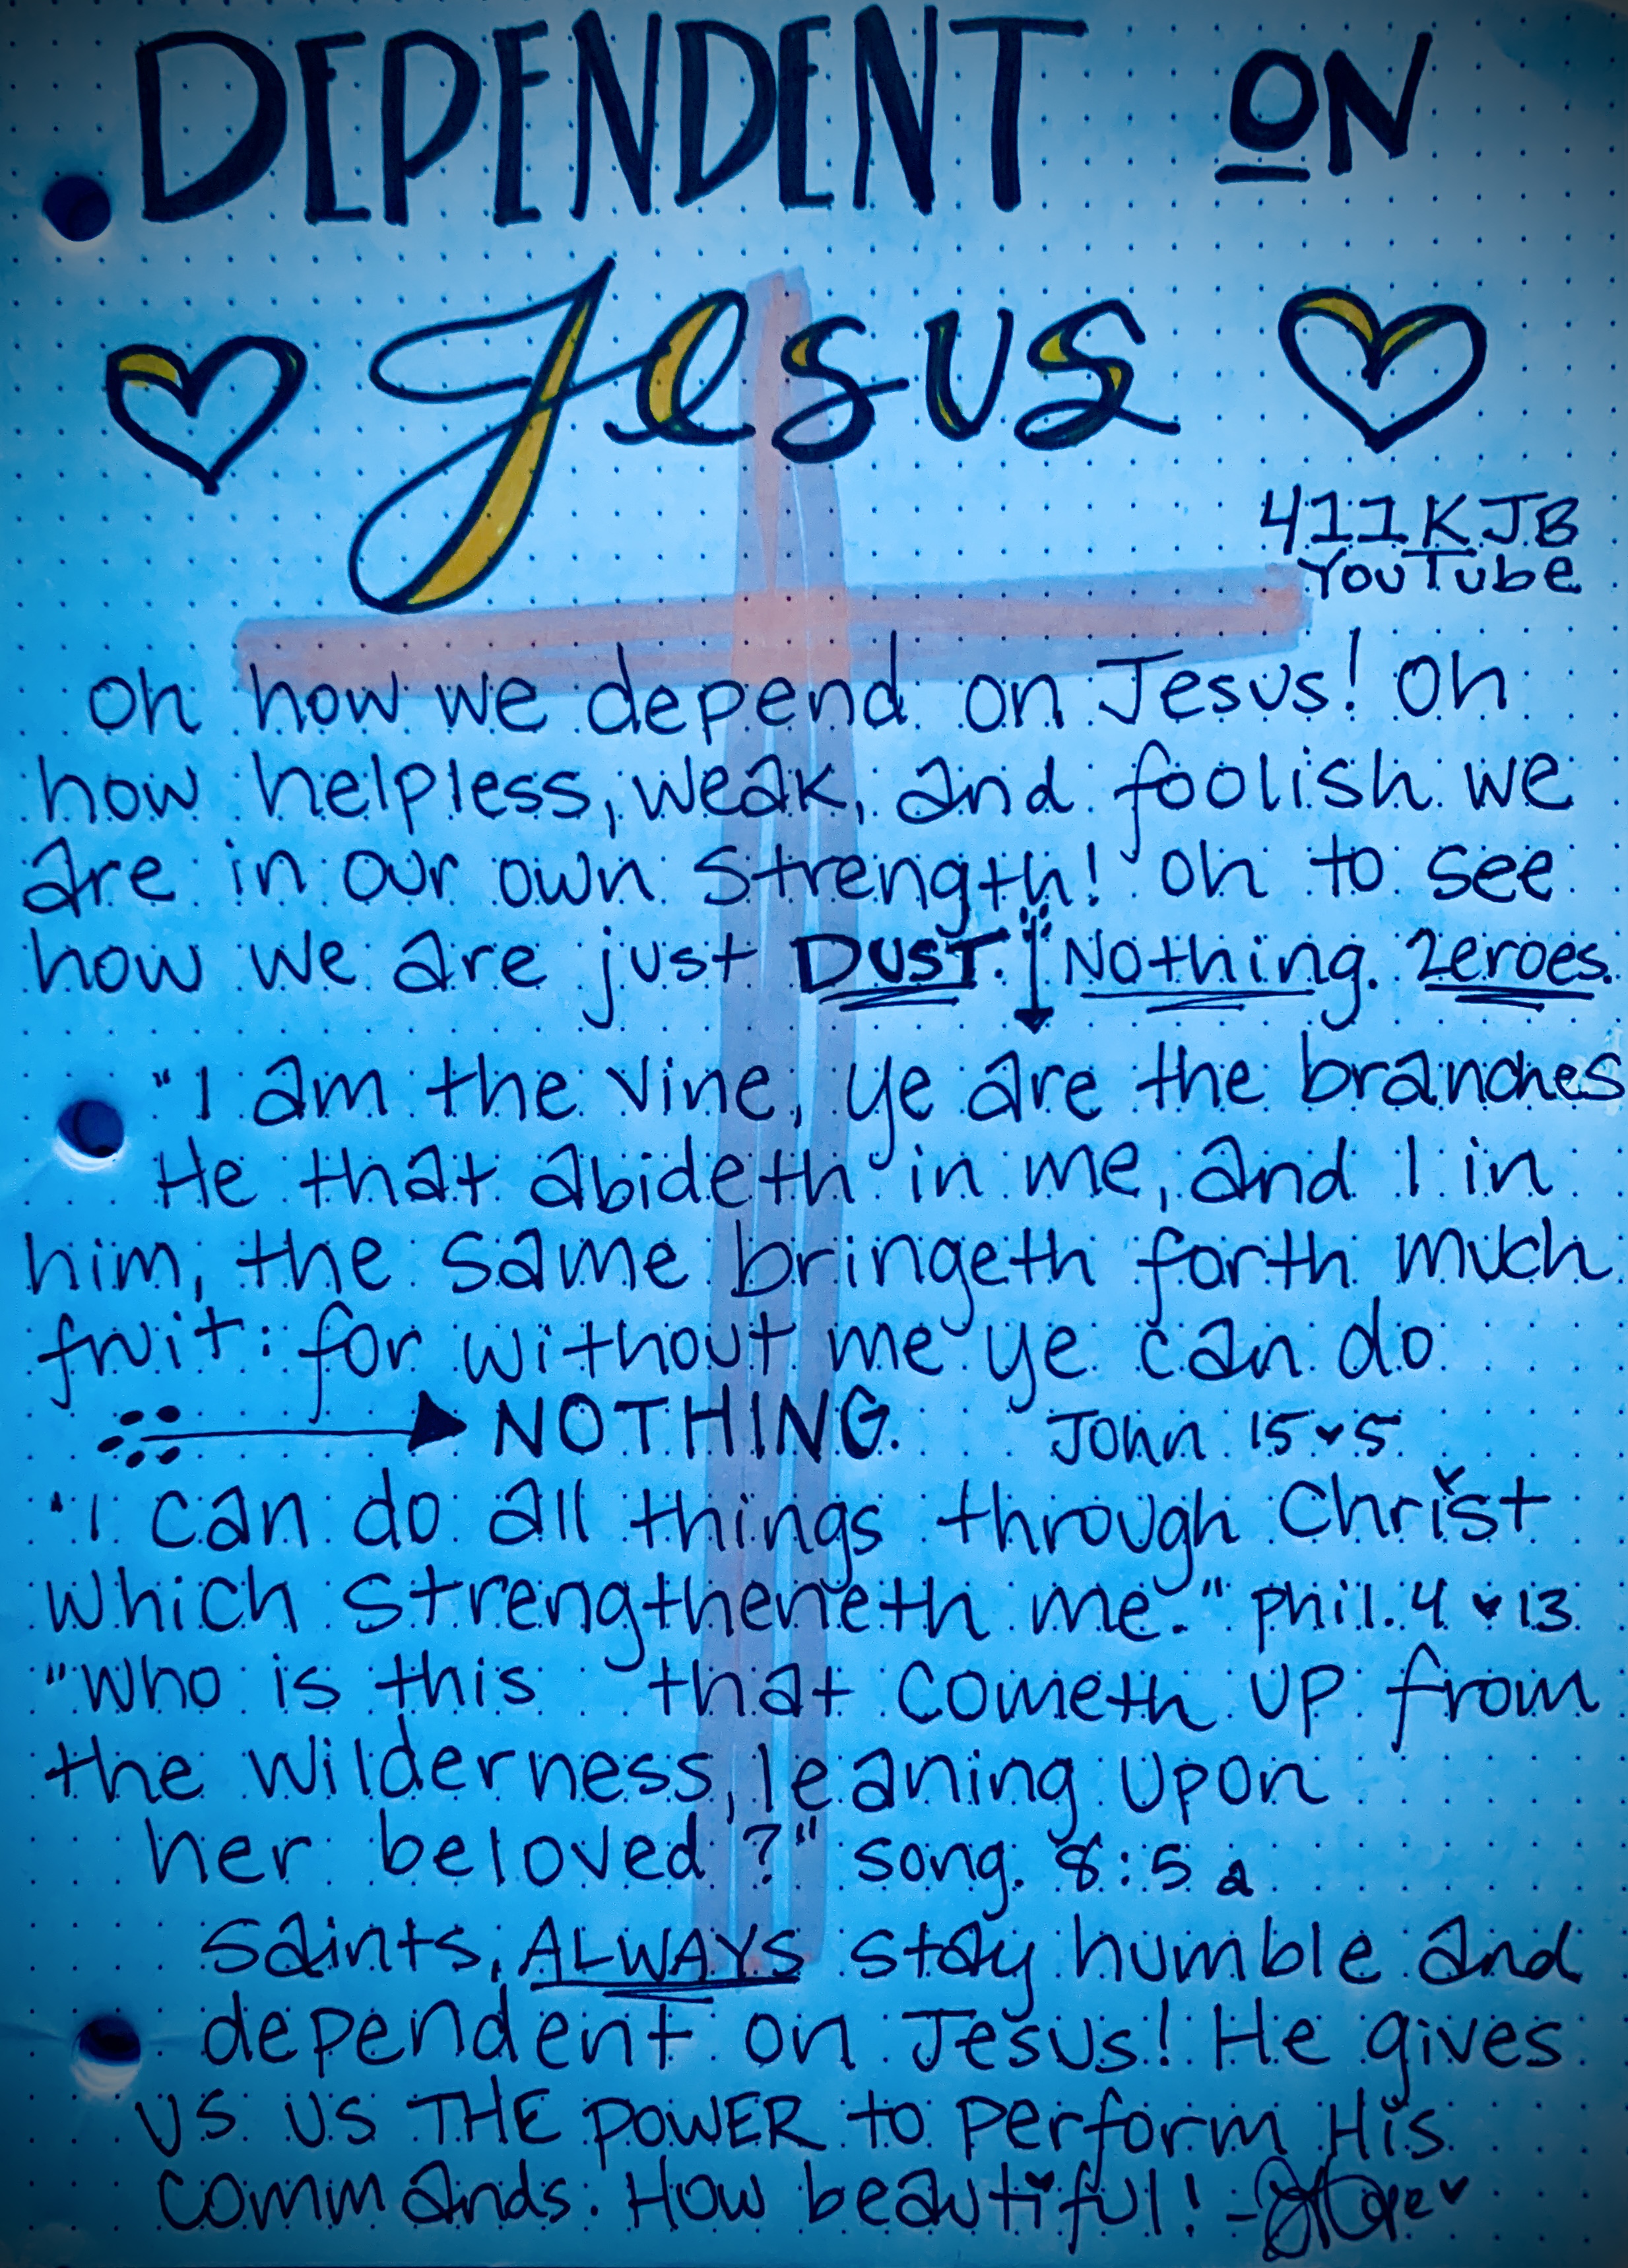 DEPENDENT ON
Jesus
411KJB
YouTube
Oh how we depend on Jesus! Oh
how helpless, weak, and foolish we
are in our own strength! Oh to see
how we are just DUST. Nothing. Zeroes.
"I am the vine, ye are the branches
He that abideth in me, and I in
him, the same bringeth forth much
fruit: for without me ye can do
NOTHING. John 15♥5
"I can do all things through Christ
which strengtheneth me." Phil. 4♥13
"Who is this that cometh up from
the wilderness, leaning upon
her beloved?" Song. 8:5a
Saints, ALWAYS stay humble and
dependent on Jesus! He gives
us us THE POWER to perform His
commands. How beautiful! -